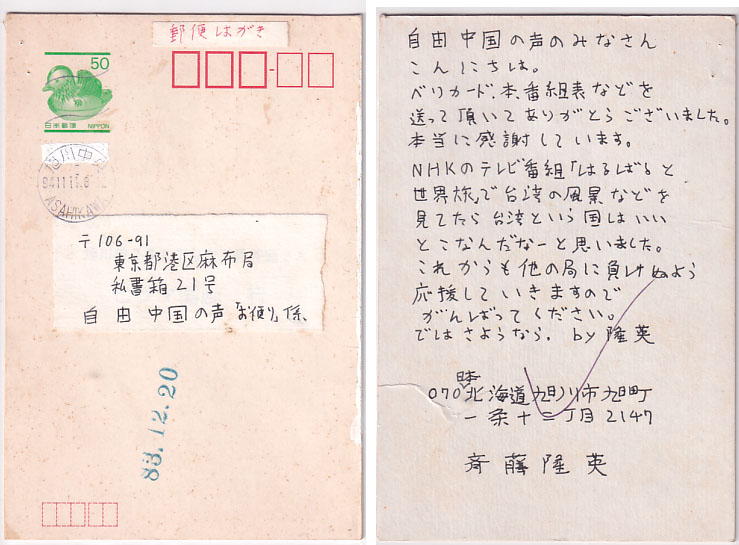 郵便はがき
50
日本郵便 NIPPON
旭川中央
ASAHIKAWA
〒106-91
東京都港区麻布局
私書箱21号
自由中国の声「お便り」係、
83.12.20
自由中国の声のみなさん
こんにちは。
ベリカード、本、番組表などを
送って頂いてありがとうございました。
本当に感謝しています。
NHKのテレビ番組「はるばると
世界旅」で台湾の風景などを
見てたら台湾という国はいい
とこなんだなーと思いました。
これからも他の局に負けぬよう
応援していきますので
がんばってください。
ではさようなら. by 隆英
070 日本 北海道旭川市旭町
一条十二丁目2147
斉藤隆英